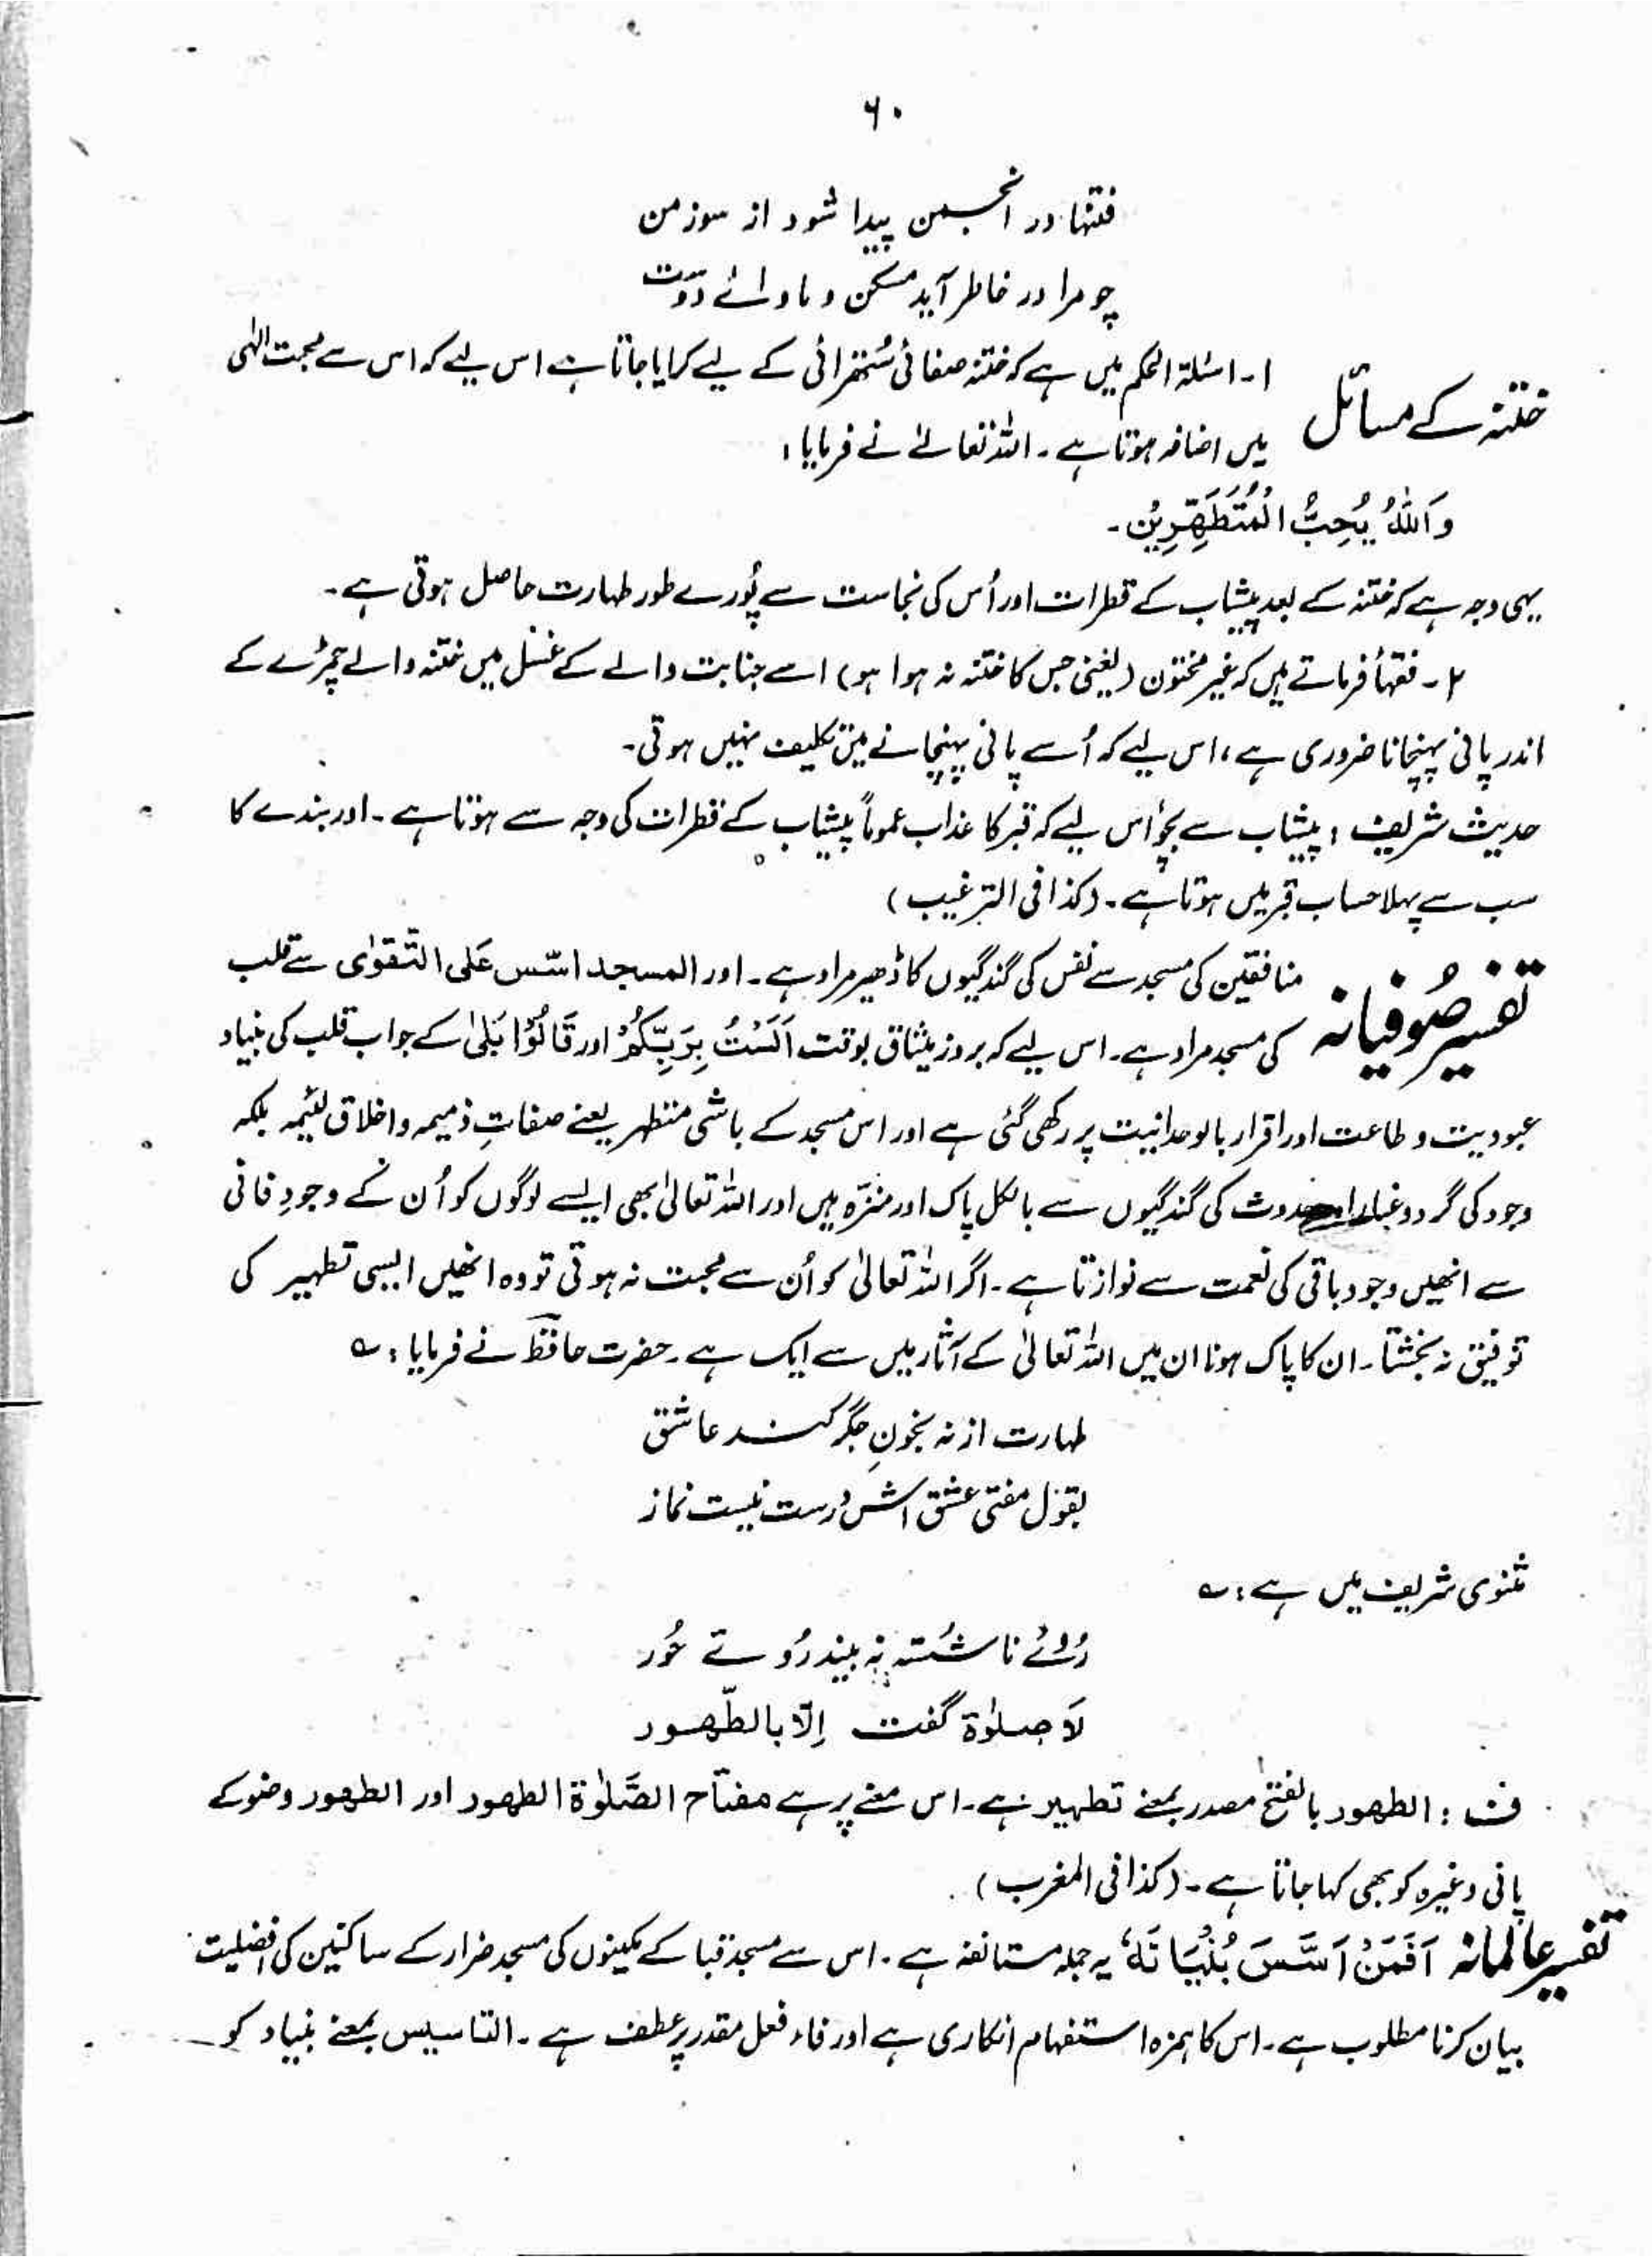 ۶۰
فتنہا در انجمن پیدا شود از سوز من
چو مرا در خاطر آید مسکن و ماوائے دوست
ختنہ کے مسائل
۱۔ اسئلۃ الحکم میں ہے کہ ختنہ صفائی سُتھرائی کے لیے کرایا جاتا ہے اس لیے کہ اس سے محبت الٰہی
میں اضافہ ہوتا ہے۔ اللہ تعالےٰ نے فرمایا:
وَاللّٰہُ یُحِبُّ الْمُتَطَہِّرِیْن۔
یہی وجہ ہے کہ ختنہ کے بعد پیشاب کے قطرات اور اُس کی نجاست سے پُورے طور طہارت حاصل ہوتی ہے۔
۲۔ فقہأ فرماتے ہیں کہ غیر مختون (یعنی جس کا ختنہ نہ ہوا ہو) اسے جنابت والے کے غسل میں ختنہ والے چمڑے کے
اندر پانی پہنچانا ضروری ہے، اس لیے کہ اُسے پانی پہنچانے میں تکلیف نہیں ہوتی۔
حدیث شریف: پیشاب سے بچو اس لیے کہ قبر کا عذاب عموماً پیشاب کے قطرات کی وجہ سے ہوتا ہے۔ اور بندے کا
سب سے پہلا حساب قبر میں ہوتا ہے۔ (کذا فی الترغیب)
تفسیر صُوفیانہ
منافقین کی مسجد سے نفس کی گندگیوں کا ڈھیر مراد ہے۔ اور المسجد اسّس عَلی التّقوٰی سے قلب
کی مسجد مراد ہے۔ اس لیے کہ بروز میثاق بوقت اَلَسْتُ بِرَبِّکُمْ اور قَالُوْا بَلٰی کے جواب قلب کی بنیاد
عبودیت و طاعت اور اقرار بالوحدانیت پر رکھی گئی ہے اور اس مسجد کے باشی متطہر یعنے صفاتِ ذمیمہ و اخلاق لئیمہ بلکہ
وجود کی گرد و غبار اور حدوث کی گندگیوں سے بالکل پاک اور منزّہ ہیں اور اللہ تعالیٰ بھی ایسے لوگوں کو اُن کے وجودِ فانی
سے انھیں وجود باقی کی نعمت سے نوازتا ہے۔ اگر اللہ تعالیٰ کو اُن سے محبت نہ ہوتی تو وہ انھیں ایسی تطہیر کی
توفیق نہ بخشتا۔ ان کا پاک ہونا ان میں اللہ تعالیٰ کے آثار میں سے ایک ہے۔ حضرت حافظؒ نے فرمایا: ؎
طہارت ار نہ بخونِ جگر کند عاشق
بقول مفتی عشق اش دُرست نیست نماز
مثنوی شریف میں ہے: ؎
رُوئے ناشُستہ نہ بیند رُوئے حُور
لَا صلوٰۃ گفت اِلّا بالطّھور
ف: الطھور بالفتح مصدر بمعنے تطہیر ہے۔ اس معنے پر ہے مفتاح الصَّلوٰۃ الطھور اور الطھور وضو کے
پانی وغیرہ کو بھی کہا جاتا ہے۔ (کذا فی المغرب)
تفسیر عالمانہ اَفَمَنْ اَسَّسَ بُنْیَانَہٗ یہ جملہ مستانفہ ہے۔ اس سے مسجد قبا کے مکینوں کی مسجد ضرار کے ساکنین کی افضلیت
بیان کرنا مطلوب ہے۔ اس کا ہمزہ استفہام انکاری ہے اور فاء فعل مقدر پر عطف ہے۔ التاسیس بمعنے بنیاد کو